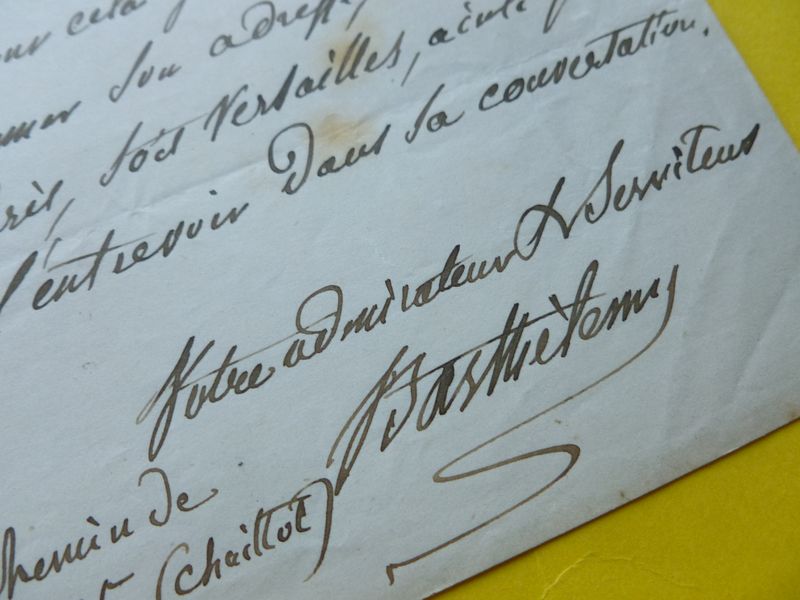 cela
son adresse,
soit Versailles, ainsi
l'entrevoir dans sa conversation.
Votre admirateur & Serviteur
Barthélemy
Chemin de
(Chaillot)